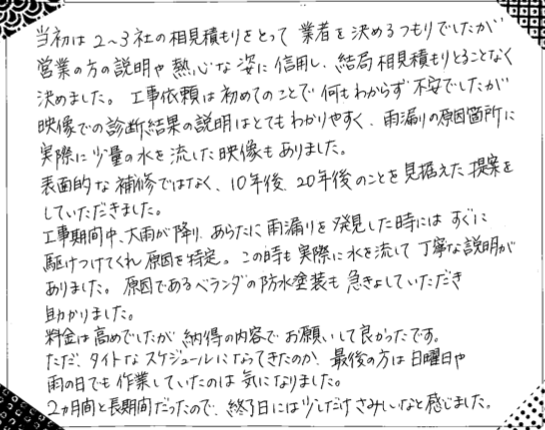 当初は2～3社の相見積もりをとって業者を決めるつもりでしたが
営業の方の説明や熱心な姿に信用し、結局相見積もりとることなく
決めました。工事依頼は初めてのことで何もわからず不安でしたが
映像での診断結果の説明はとてもわかりやすく、雨漏りの原因箇所に
実際に少量の水を流した映像もありました。
表面的な補修ではなく、10年後、20年後のことを見据えた提案を
していただきました。
工事期間中、大雨が降り、あらたに雨漏りを発見した時にはすぐに
駆けつけてくれ原因を特定。この時も実際に水を流して丁寧な説明が
ありました。原因であるベランダの防水塗装も急きょしていただき
助かりました。
料金は高めでしたが納得の内容でお願いして良かったです。
ただ、タイトなスケジュールになってきたのか、最後の方は日曜日や
雨の日でも作業していたのは気になりました。
2ヵ月間と長期間だったので、終了日には少しだけさみしいなと感じました。